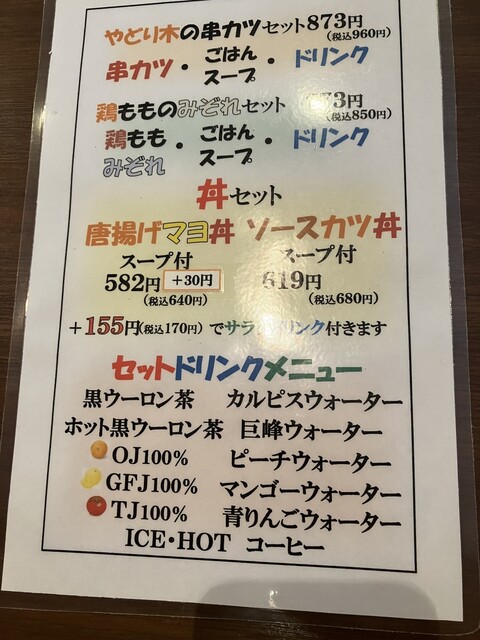 やどり木の串カツセット873円
(税込960円)
串カツ・ごはん スープ・ドリンク
鶏もものみぞれセット 73円
(税込850円)
鶏もも みぞれ・ごはん スープ・ドリンク
丼セット
唐揚げマヨ丼 ソースカツ丼
スープ付 スープ付
582円 +30円 619円
(税込640円) (税込680円)
+155円(税込170円)でサラ ドリンク付きます
セットドリンクメニュー
黒ウーロン茶 カルピスウォーター
ホット黒ウーロン茶 巨峰ウォーター
OJ100% ピーチウォーター
GFJ100% マンゴーウォーター
TJ100% 青りんごウォーター
ICE・HOT コーヒー